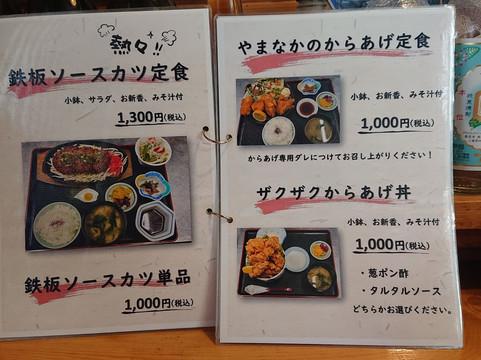 熱々!!
鉄板ソースカツ定食
小鉢、サラダ、お新香、みそ汁付
1,300円(税込)
鉄板ソースカツ単品
1,000円(税込)
やまなかのからあげ定食
小鉢、お新香、みそ汁付
1,000円(税込)
からあげ専用ダレにつけてお召し上がりください！
ザクザクからあげ丼
小鉢、お新香、みそ汁付
1,000円(税込)
・葱ポン酢
・タルタルソース
どちらかお選びください。